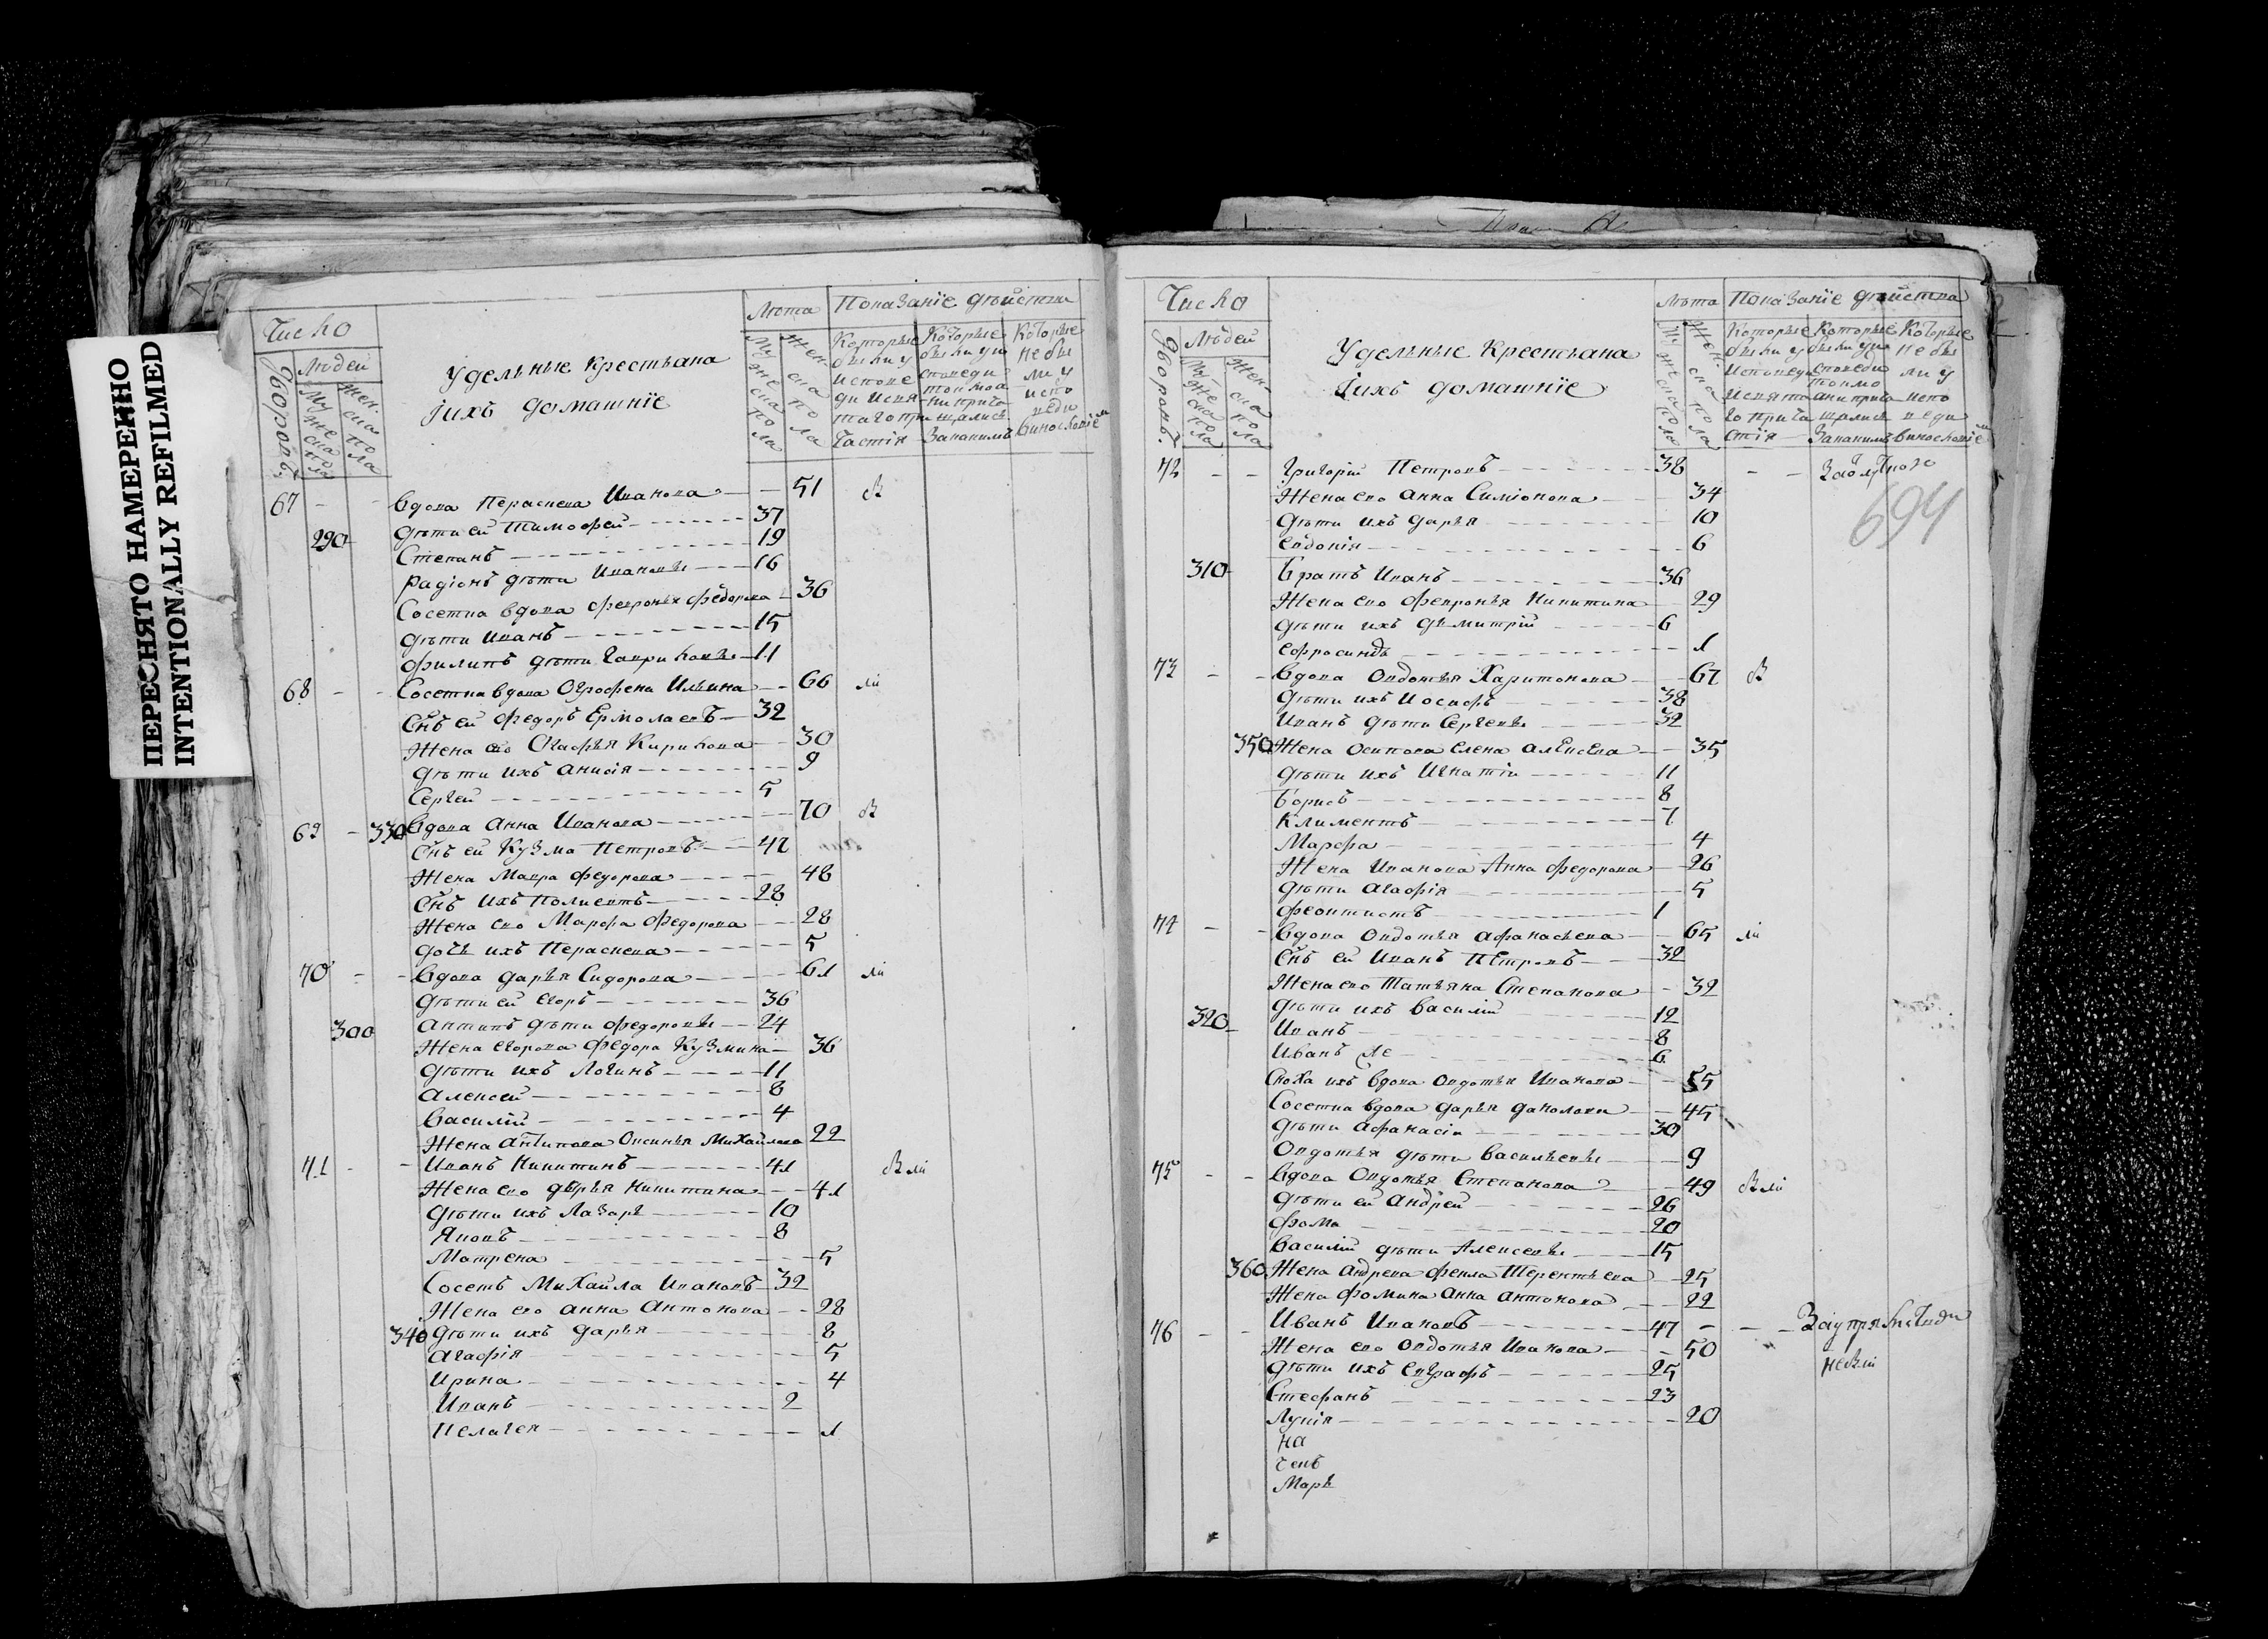 ПЕРЕСНЯТО НАМЕРЕННО
INTENTIONALLY REFILMED
Число
Людей
Дворовъ
Мужеска пола
Женска пола
Удельные крестьяна
іихъ домашніе
Лѣта
Мужеска пола
Женска пола
Показаніе дѣйства
Которые были у исповеди и святаго причастія
Которые были у исповеди токмо а не причащалис
Которые не были у исповеди
67 - - Вдова Параскева Иванова - 51
Дѣти ей Тимофей - 37
290 Степанъ - 19
Радіонъ дѣти Ивановы - 16
Сосетка вдова Февронья Федорова - 36
Дѣти Иванъ - 15
Филипъ дѣти Гавриловы - 11
68 - - Сосетка вдова Огрофена Ильина - 66
Снъ ей Федоръ Ермолаевъ - 32
Жена ево Огафья Кирилова - 30
Дѣти ихъ Анисія - 9
Сергей - 5
69 - 330 Вдова Анна Иванова - 70
Снъ ей Кузма Петровъ - 42
Жена Мавра Федорова - 48
Снъ ихъ Полиектъ - 28
Жена ево Марфа Федорова - 28
Дочь ихъ Пераскева - 5
70 - - Вдова Дарья Сидорова - 61
Дѣти ей Егоръ - 36
300 Антипъ дѣти Федоровы - 24
Жена Егорова Федора Кузмина - 36
Дѣти ихъ Логинъ - 11
Алексей - 8
Василій - 4
Жена Антипова Оксинья Михайлова 22
71 - - Иванъ Никитинъ - 41
Жена ево Дарья Никитина - 41
Дѣти ихъ Лазарь - 10
Яковъ - 8
Матрена - 5
Сосетъ Михайла Ивановъ - 32
Жена ево Анна Антонова - 28
340 Дѣти ихъ Дарья - 8
Агафія - 5
Ирина - 4
Иванъ - 2
Пелагея - 1
Число
Людей
Дворовъ
Мужеска пола
Женска пола
Удельные Крестьяна
Іихъ домашніе
Лѣта
Мужеска пола
Женска пола
Показаніе дѣйства
Которые были у исповеди и святаго причастія
Которые были у исповеди токмо а не причащались
Которые не были у исповеди
694
72 - - Григорій Петровъ - 38
Жена ево Анна Симіонова 34
Дѣти ихъ Дарья - 10
Евдокія - 6
310 Братъ Иванъ - 36
Жена ево Февронья Никитина - 29
Дѣти ихъ Дѣмитрій - 6
Ефросинья - 1
73 - - Вдова Овдотья Харитонова - 67
Дѣти ихъ Иосифъ 38
Иванъ дѣти Сергеевы 32
350 Жена Осипова Елена Алексева - 35
Дѣти ихъ Игнатій - 11
Борисъ - 8
Климентъ - 7
Марфа - 4
Жена Иванова Анна Федорова - 26
Дѣти Агафія - 5
Феоктистъ - 1
74 - - Вдова Овдотья Афанасьева - 65
Снъ ей Иванъ Петровъ - 32
Жена ево Татьяна Степанова - 32
Дѣти ихъ Василій - 12
320 Иванъ - 8
Иванъ - 6
Сноха ихъ вдова Овдотья Иванова - 55
Сосетка вдова Дарья - 45
Дѣти Афанасій - 30
Овдотья дѣти Васильевы - 9
75 - - Вдова Овдотья Степанова - 49
Дѣти ей Андрей - 26
Фома - 20
Василій дѣти Алексевы - 15
360 Жена Андрева Фекла Терентьева - 25
Жена Фомина Анна Антонова - 22
76 - - Иванъ Ивановъ - 47
Жена ево Овдотья Иванова - 50
Дѣти ихъ Евграфъ - 25
Стефанъ - 23
Лукія - 20
на
Марь